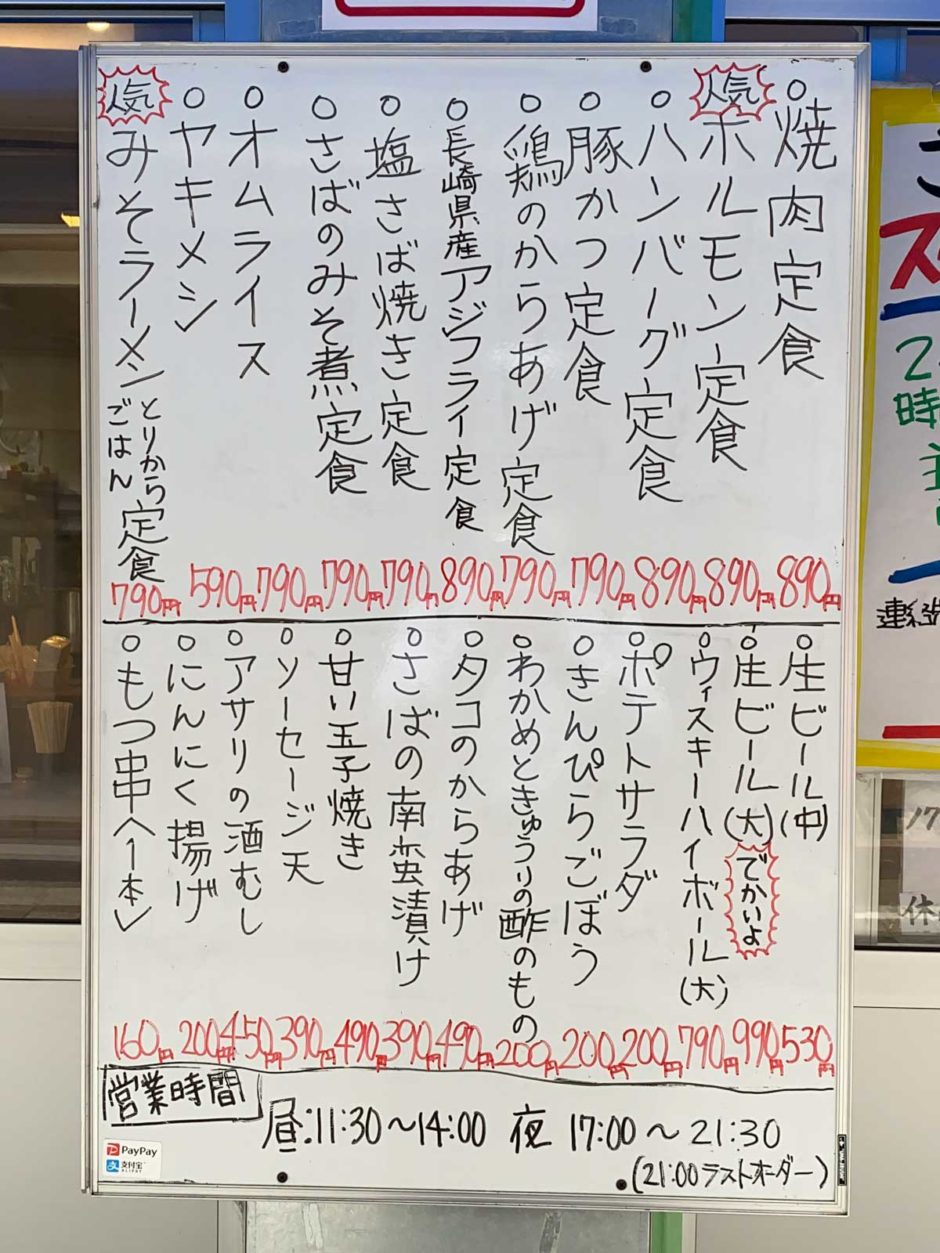 ○焼肉定食 890円
人気 ホルモン定食 890円
○ハンバーグ定食 890円
○豚かつ定食 790円
○鶏のからあげ定食 790円
○長崎県産アジフライ定食 890円
○塩さば焼き定食 790円
○さばのみそ煮定食 790円
○オムライス 790円
○ヤキメシ 590円
人気 みそラーメン とりから ごはん 定食 790円
○生ビール(中) 530円
○生ビール(大) でかいよ 990円
○ウィスキーハイボール(大) 790円
○ポテトサラダ 200円
○きんぴらごぼう 200円
○わかめときゅうりの酢のもの 200円
○タコのからあげ 490円
○さばの南蛮漬け 390円
○甘い玉子焼き 490円
○ソーセージ天 390円
○アサリの酒むし 450円
○にんにく揚げ 200円
○もつ串〈1本〉 160円
営業時間
昼:11:30〜14:00 夜 17:00〜21:30
(21:00ラストオーダー)
PayPay
支付宝
ALIPAY
時
連絡
休